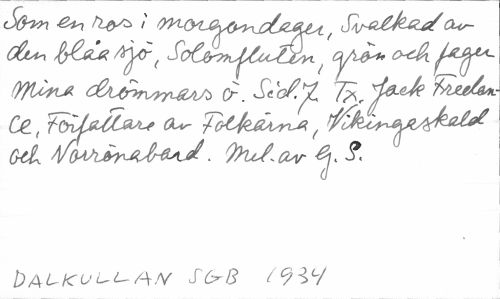 Som en ros i morgondager, Svalkad av
den blåa sjö, Solomfluten, grön och fager
Mina drömmars ö. Sid. 7. Tx. Jack Fredan-
ce, Författare av Folkärna, Vikingaskald
och Norrönabard. Mel. av G. S.
DALKULLAN SGB 1934